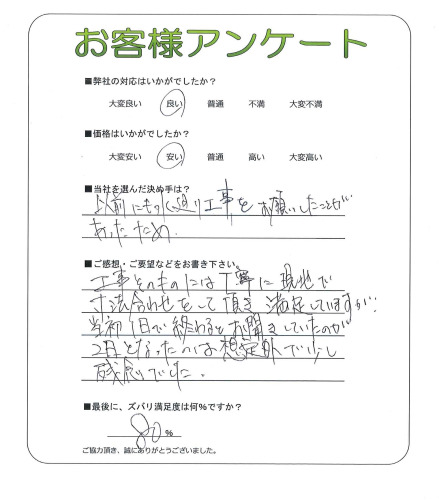 お客様アンケート
■弊社の対応はいかがでしたか？
大変良い　良い　普通　不満　大変不満
■価格はいかがでしたか？
大変安い　安い　普通　高い　大変高い
■当社を選んだ決め手は？
以前にも水廻り工事をお願いしたことが
あったため.
■ご感想・ご要望などをお書き下さい。
工事そのものには丁寧に現地で
寸法合わせをして頂き満足していますが、
当初1日で終わるとお聞きしていたのが
2日となったのは想定外で少し
残念でした。
■最後に、ズバリ満足度は何％ですか？
80％
ご協力頂き、誠にありがとうございました。